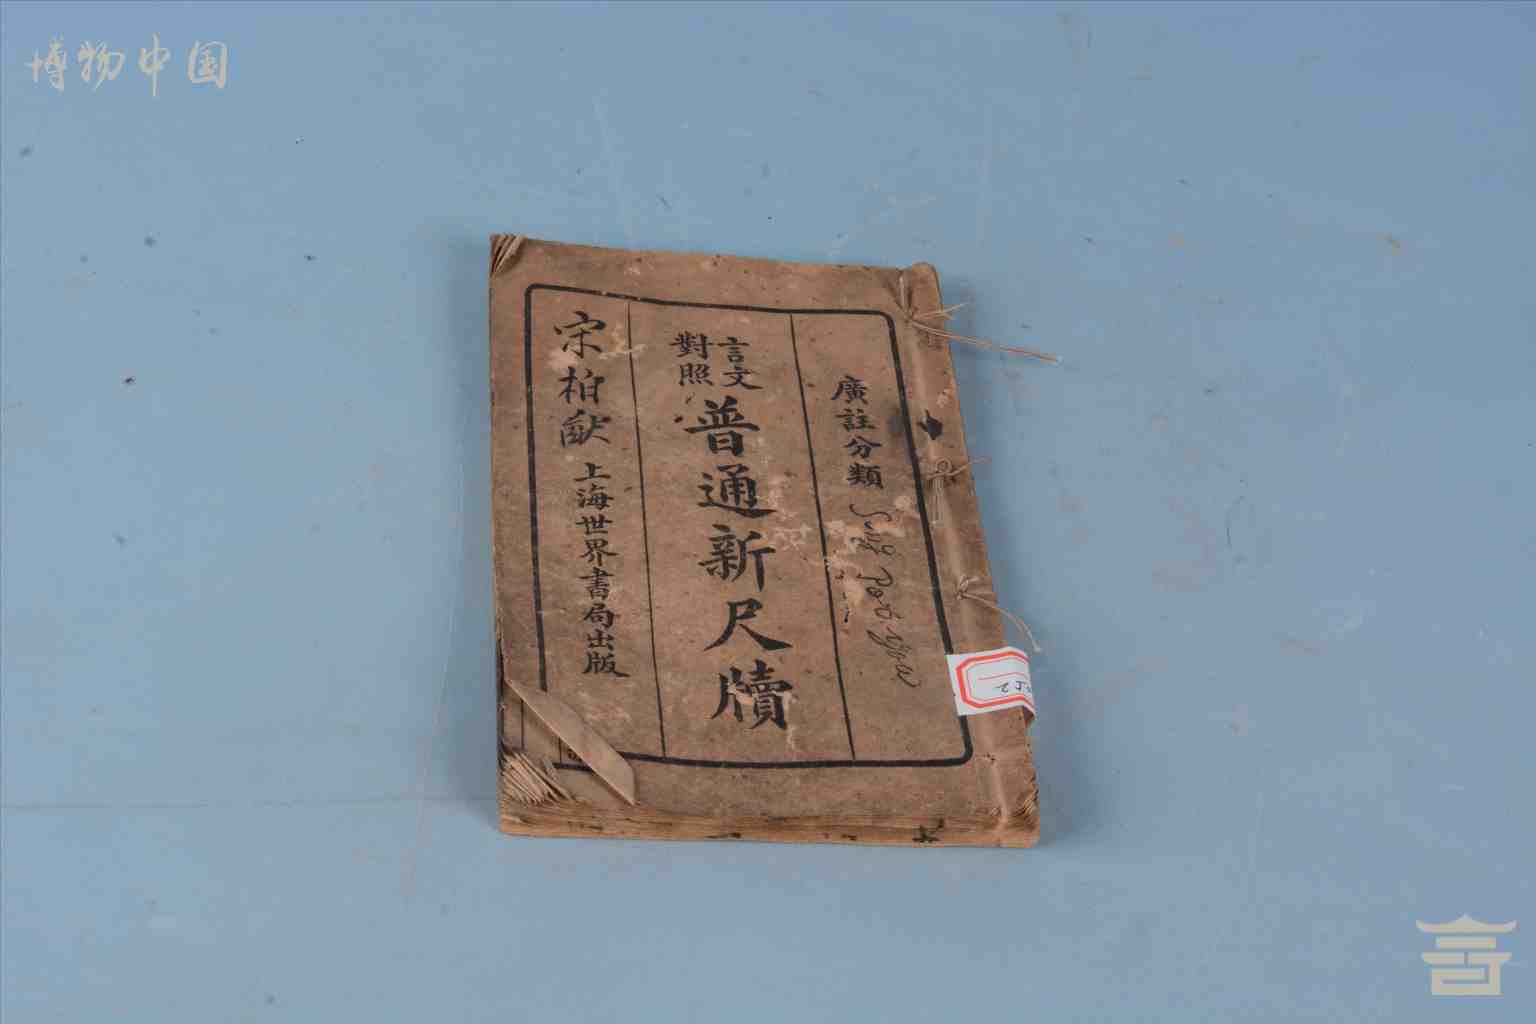 博物中国
廣註分類
言文對照
普通新尺牘
宋柏
上海世界書局出版